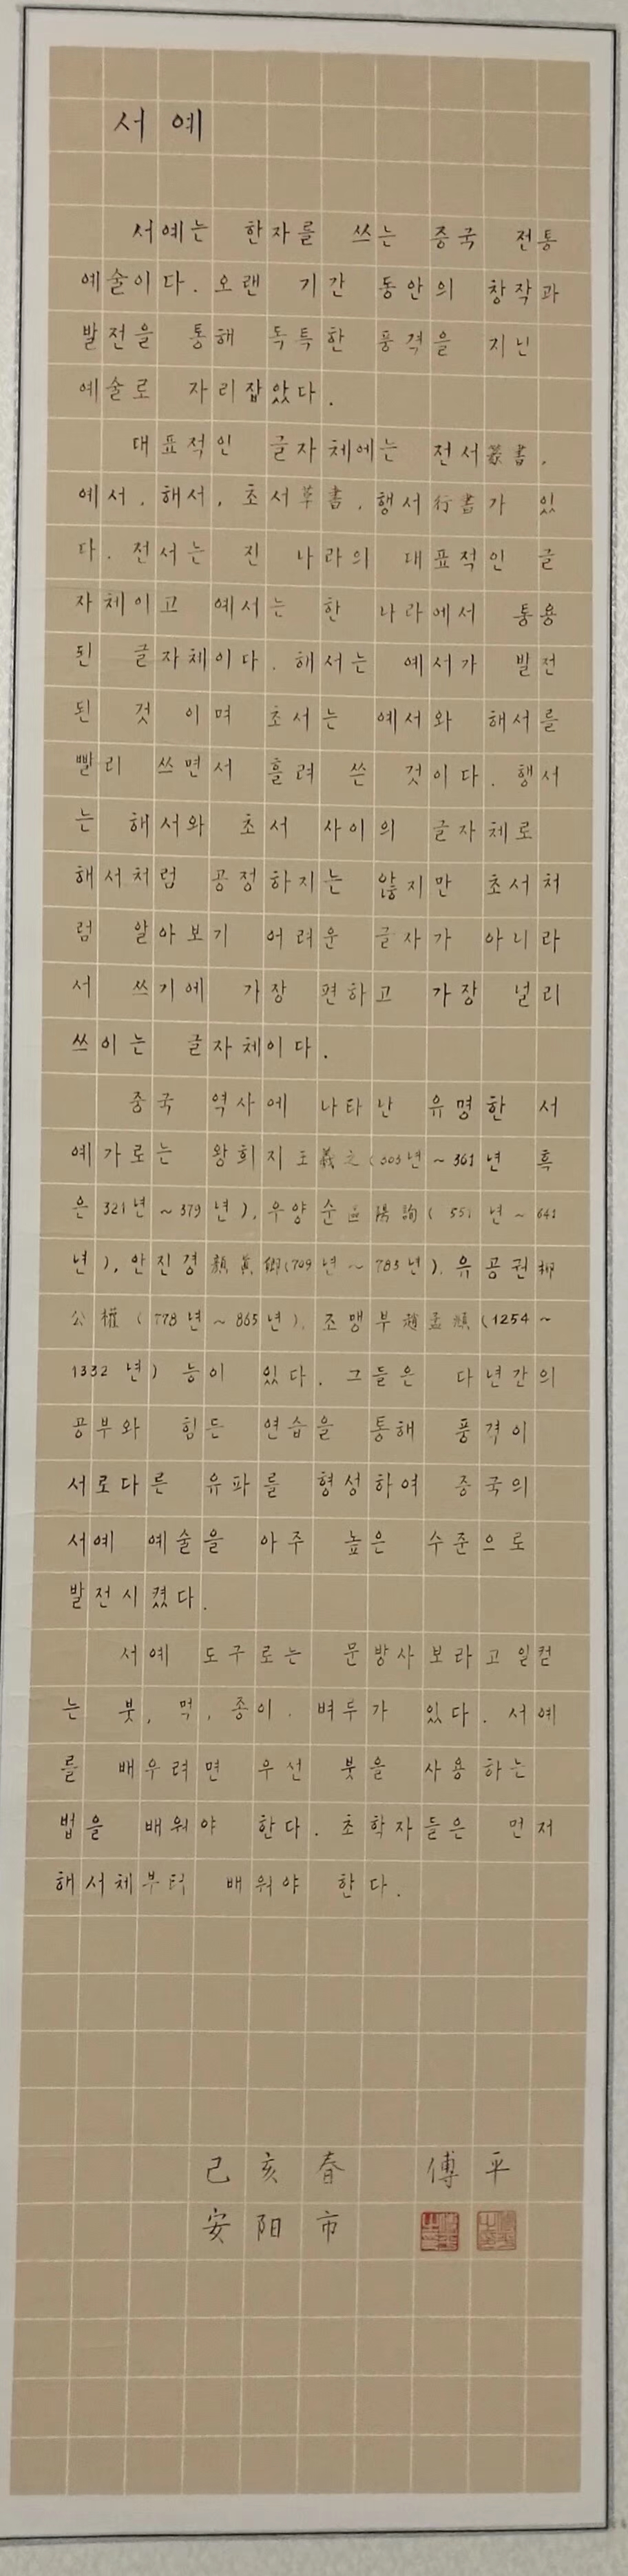 서예
서예는 한자를 쓰는 중국 전통
예술이다. 오랜 기간 동안의 창작과
발전을 통해 독특한 풍격을 지닌
예술로 자리잡았다.
대표적인 글자체에는 전서篆書,
예서, 해서, 초서草書, 행서行書가 있
다. 전서는 진 나라의 대표적인 글
자체이고 예서는 한 나라에서 통용
된 글자체이다. 해서는 예서가 발전
된 것 이며 초서는 예서와 해서를
빨리 쓰면서 흘려 쓴 것이다. 행서
는 해서와 초서 사이의 글자체로
해서처럼 공정하지는 않지만 초서처
럼 알아보기 어려운 글자가 아니라
서 쓰기에 가장 편하고 가장 널리
쓰이는 글자체이다.
중국 역사에 나타난 유명한 서
예가로는 왕희지王羲之(303년~361년 혹
은 321년~379년), 우양순 陽詢( 551년~641
년), 안진경顔眞卿(709년~785년), 유공권柳
公權(778년~865년), 조맹부趙孟頫(1254~
1332년) 능이 있다. 그들은 다년간의
공부와 힘든 연습을 통해 풍격이
서로다른 유파를 형성하여 중국의
서예 예술을 아주 높은 수준으로
발전시켰다.
서예 도구로는 문방사보라고 일컫
는 붓, 먹, 종이, 벼루가 있다. 서예
를 배우려면 우선 붓을 사용하는
법을 배워야 한다. 초학자들은 먼저
해서체부터 배워야 한다.
己亥春 傅平
安阳市